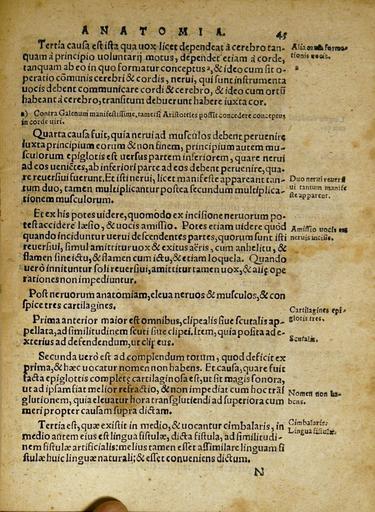 ANATOMIA. 45
Tertia causa est ista qua uox licet dependeat à cerebro tan-
quam à principio uoluntarij motus, dependet etiam à corde,
tanquam ab eo in quo formatur conceptus a, & ideo cum sit o-
peratio cõmunis cerebri & cordis, nerui, qui sunt instrumenta
uocis debent communicare cordi & cerebro, & ideo cum ortũ
habeant à cerebro, transitum debuerunt habere iuxta cor.
Alia causa forma-
tionis uocis.
a
a) Contra Galenum manifestissime, tametsi Aristoteles possit concedere conceptus
in corde uiri.
Quarta causa fuit, quia nerui ad musculos debent peruenire
iuxta principium eorum & non finem, principium autem mu-
sculorum epiglotis est uersus partem inferiorem, quare nerui
ad eos uenientes, ab inferiori parte ad eos debent peruenire, qua-
re reuersiui fuerunt. Et isti nerui, licet manifeste appareant tan-
tum duo, tamen multiplicantur postea secundum multiplica-
tionem musculorum.
Duo nerui reuersi
ui tantum manife
ste apparent.
Et ex his potes uidere, quomodo ex incisione neruorum po-
test accidere læsio, & uocis amissio. Potes etiam uidere quòd
quando inciduntur uerui descendentes partes, quorum sunt isti
reuersiui, simul amittitur uox & exitus aëris, cum anhelitu, &
flamen sine ictu, & flamen cum ictu, & etiam loquela. Quando
uerò inniruntur soli reuersiui, amittitur tamen uox, & aliæ ope
rationes non impediuntur.
Amissio uocis ex
neruis incisis.
Post neruorum anatomiam, eleua neruos & musculos, & con
spice tres cartilagines.
Cartilagines epi-
glotis tres.
Prima anterior maior est omnibus, clipealis siue scutalis ap-
pellata, ad similitudinem scuti siue clipei. Item, quia posita ad e-
xterius ad defendendum, ut clipeus.
Scutalis.
Secunda uerò est ad complendum totum, quod deficit ex
prima, & hæc uocatur nomen non habens. Et causa, quare fuit
facta epiglottis complete cartilaginosa est, ut sit magis sonora,
ut ad ipsam fiat melior refractio, & non impediat cum hoc trãs
glutionem, quia eleuatur hora transglutiendi ad superiora cum
meri propter causam supra dictam.
Nomen non ha-
bens.
Tertia est, quæ existit in medio, & uocantur cimbalaris, in
medio autem eius est lingua fistulæ, dicta fistula, ad similitudi-
nem fistulæ artificialis: melius tamen esset assimilare linguam fi
stulæ huic linguæ naturali; & esset conueniens dictum.
Cimbalaris:
Lingua fistulæ.
N